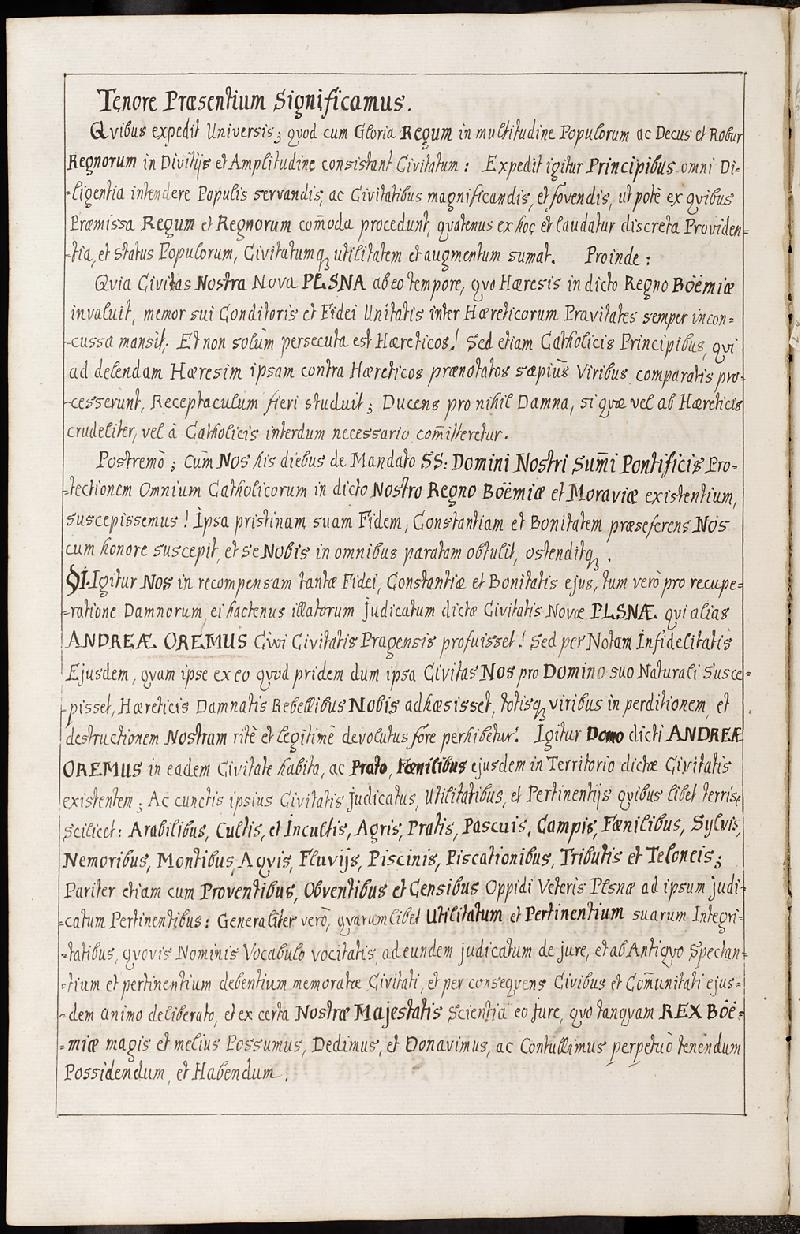 Tenore Præsentium Significamus.
Qvibus expedit Universis; qvod cum Gloria Regum in multitudine Populorum ac Decus et Robur
Regnorum in Divitijs et Amplitudine consistant Civitatum: Expedit igitur Principibus omni Di-
-ligentia intendere Populis servandis, ac Civitatibus magnificandis, et fovendis, ut potè ex qvibus
Præmissa Regum et Regnorum com̃oda procedunt, qvatenus ex hoc et laudatur discreta Providen-
-tia, et status Populorum, Civitatumqȝ utilitatem et augmentum sumat. Proinde:
Qvia Civitas Nostra Nova PLSNA ab eo tempore, qvo Hæresis in dicto Regno Boëmiæ
invaluit, memor sui Conditoris et Fidei Unitatis inter Hæreticorum Pravitates semper incon-
-cussa mansit; Et non solùm persecuta est Hæreticos! Sed etiam Catholicis Principibus, qvi
ad delendam Hæresim ipsam contra Hæreticos prænotatos sæpiùs Viribus comparatis pro-
-cesserunt, Receptaculum fieri studuit; Ducens pro nihil Damna, si qvæ vel ab Hæreticis
crudeliter, vel à Catholicis interdum necessario com̃itteretur.
Postremò; Cùm Nos his diebus de Mandato SS: Domini Nostri Sum̃i Pontificis Pro-
-tectionem Omnium Catholicorum in dicto Nostro Regno Boëmiæ et Moraviæ existentium,
suscepissemus! Ipsa pristinam suam Fidem, Constantiam et Bonitatem præseferens Nos
cum honore suscepit, et se Nobis in omnibus paratam obtulit, ostenditqȝ.
Igitur Nos in recompensam tantæ Fidei, Constantiæ et Bonitatis ejus, tum verò pro recupe-
-ratione Damnorum, ei hactenus illatorum judicatum dictæ Civitatis Novæ PLSNÆ. qvi alias
ANDREÆ OREMUS Civi Civitatis Pragensis profuisset! Sed per Notam Infidelitatis
Ejusdem, qvam ipse ex eo qvod pridem dum ipsa Civitas Nos pro Domino suo Naturali susce-
-pisset, Hæreticis Damnatis Rebellibus Nobis adhæsisset, totisqȝ viribus in perditionem, et
destructionem Nostram ritè et legitimè devolutus fore perhibetur! Igitur Domo dicti ANDREÆ
OREMUS in eadem Civitate habita, ac Prato, Fœnilibus ejusdem in Territorio dictæ Civitatis
existentem; Ac cunctis ipsius Civitatis judicatus, Utilitatibus, et Pertinentijs qvibus libet terris,
Scilicet: Arabilibus, Cultis, et Incultis, Agris, Pratis, Pascuis, Campis, Fœnilibus, Sylvis,
Nemoribus, Montibus, Aqvis, Fluvijs, Piscinis, Piscationibus, Tributis et Teloneis;
Pariter etiam cum Proventibus, Obventibus et Censibus Oppidi Veteris Plsnæ ad ipsum judi-
-catum Pertinentibus: Generaliter verò, qvarumlibet Utilitatum et Pertinentium suarum Integri-
-tatibus, qvovis Nominis Vocabulo vocitatis, ad eundem judicatum de jure, et ab Antiqvo Spectan-
-tium et pertinentium debentium memoratæ Civitati, et per conseqvens Civibus et Com̃unitati ejus-
-dem animo deliberato, et ex certa Nostræ Majestatis Scientia eo Jure, qvo tanqvam REX Boë-
-miæ magis et melius Possumus, Dedimus, et Donavimus, ac Contullimus perpetuò tenendum
Possidendum, et Habendum.